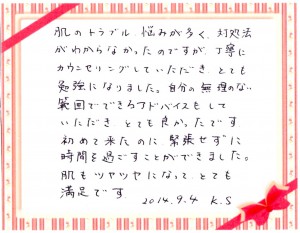 肌のトラブル、悩みが多く、対処法
がわからなかったのですが、丁寧に
カウンセリングしていただき、とても
勉強になりました。自分の無理のない
範囲でできるアドバイスをして
いただき、とても良かったです
初めて来たのに、緊張せずに
時間を過ごすことができました。
肌もツヤツヤになって、とても
満足です
2014.9.4 K.S